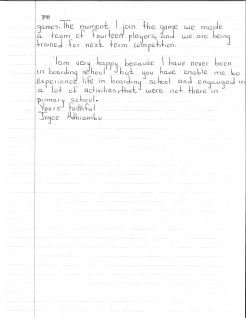 PP
games. The moment I join the game we made
a team of fourteen players, and we are being
trained for next term competition.
Iam very happy because I have never been
in boarding school but you have enable me to
experience life in boarding school and engauged in
a lot of activities, that were not there in
primary school.
Yours faithful
Joyce Adhiambo